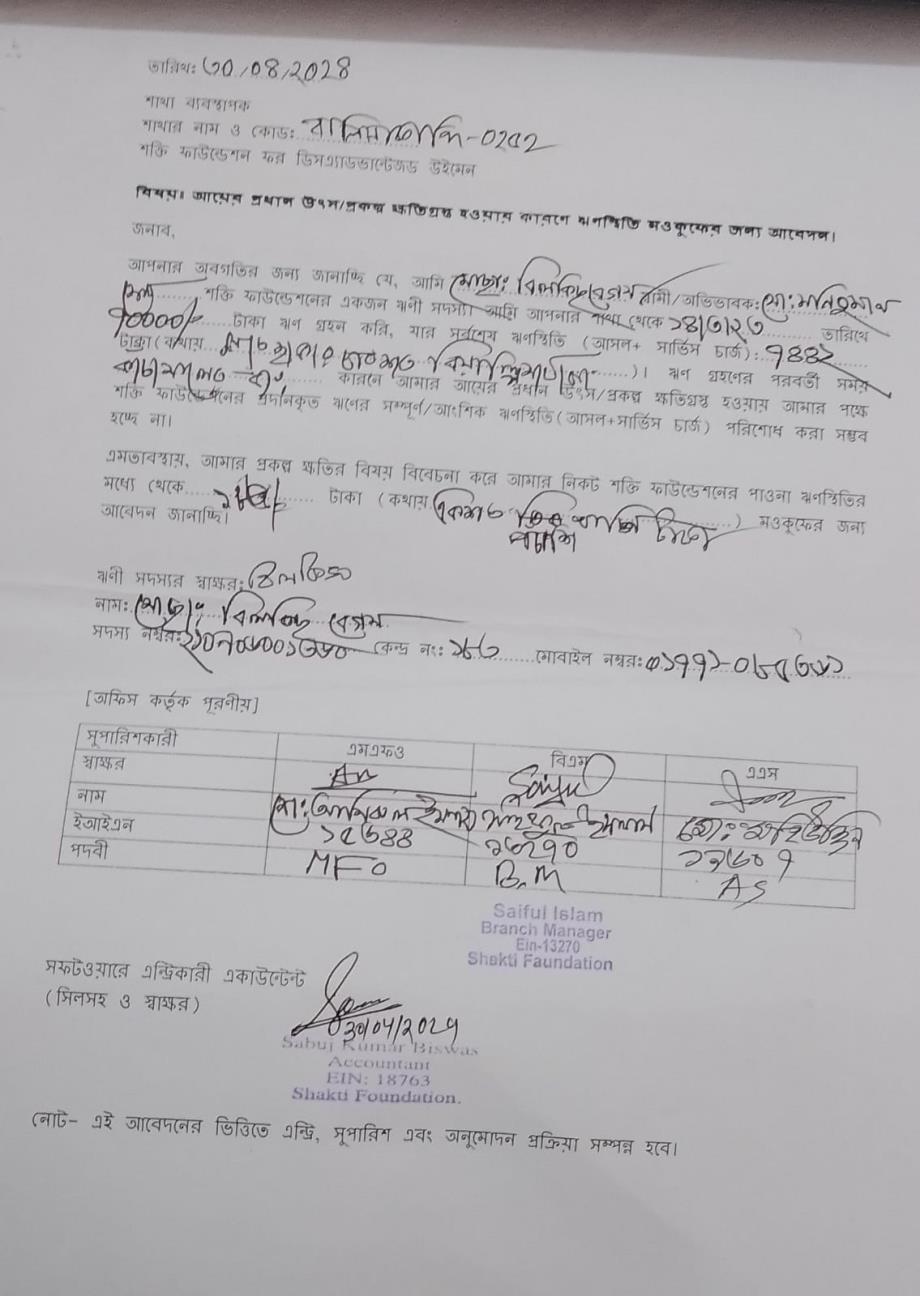 তারিখ: ৩০/০৪/২০২৪
শাখা ব্যবস্থাপক
শাখার নাম ও কোড: বালিয়াকান্দি-০২৫২
শক্তি ফাউন্ডেশন ফর ডিসএ্যাডভান্টেজড উইমেন
বিষয়ঃ আয়ের প্রধান উৎস/প্রকল্প ক্ষতিগ্রস্থ হওয়ার কারণে ঋণস্থিতি মওকুফের জন্য আবেদন।
জনাব,
আপনার অবগতির জন্য জানাচ্ছি যে, আমি মোছাঃ বিলকিছ বেগম স্বামী/অভিভাবক: মো: মনিরুজ্জামান
শক্তি ফাউন্ডেশনের একজন ঋণী সদস্য। আমি আপনার শাখা থেকে ১৪/৩/২৩ তারিখে
টাকা ঋণ গ্রহন করি, যার সর্বশেষ ঋণস্থিতি (আসল+ সার্ভিস চার্জ): ৭৪৪২
টাকা (কথায় সাত হাজার চারশত বিয়াল্লিশ টাকা)। ঋণ গ্রহণের পরবর্তী সময়
কারনে আমার আয়ের প্রধান উৎস/প্রকল্প ক্ষতিগ্রস্থ হওয়ায় আমার পক্ষে
শক্তি ফাউন্ডেশনের প্রদানকৃত ঋণের সম্পূর্ণ/আংশিক ঋণস্থিতি(আসল+সার্ভিস চার্জ) পরিশোধ করা সম্ভব
হচ্ছে না।
এমতাবস্থায়, আমার প্রকল্প ক্ষতির বিষয় বিবেচনা করে আমার নিকট শক্তি ফাউন্ডেশনের পাওনা ঋণস্থিতির
মধ্যে থেকে টাকা (কথায় একশত টাকা) মওকুফের জন্য
পঁচাশি
আবেদন জানাচ্ছি।
ঋণী সদস্যর স্বাক্ষর: বিলকিছ
নাম: মোছাঃ বিলকিছ বেগম
সদস্য নম্বর: কেন্দ্র নং: মোবাইল নম্বর:
[অফিস কর্তৃক পূরণীয়]
সুপারিশকারী এমএফও বিএম এএস
স্বাক্ষর
নাম সাইফুল ইসলাম
ইআইএন ১৩২৭০
পদবী MFO B.M AS
Saiful Islam
Branch Manager
Ein-13270
Shakti Faundation
সফটওয়ারে এন্ট্রিকারী একাউন্টেন্ট
(সিলসহ ও স্বাক্ষর)
30/04/2024
Sabuj Kumar Biswas
Accountant
EIN: 18763
Shakti Foundation.
নোট- এই আবেদনের ভিত্তিতে এন্ট্রি, সুপারিশ এবং অনুমোদন প্রক্রিয়া সম্পন্ন হবে।